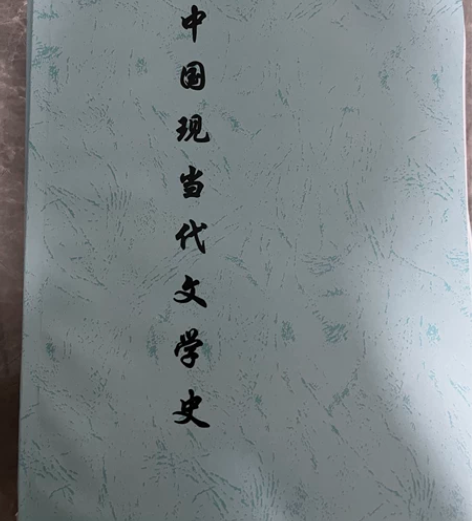 中国现当代文学史